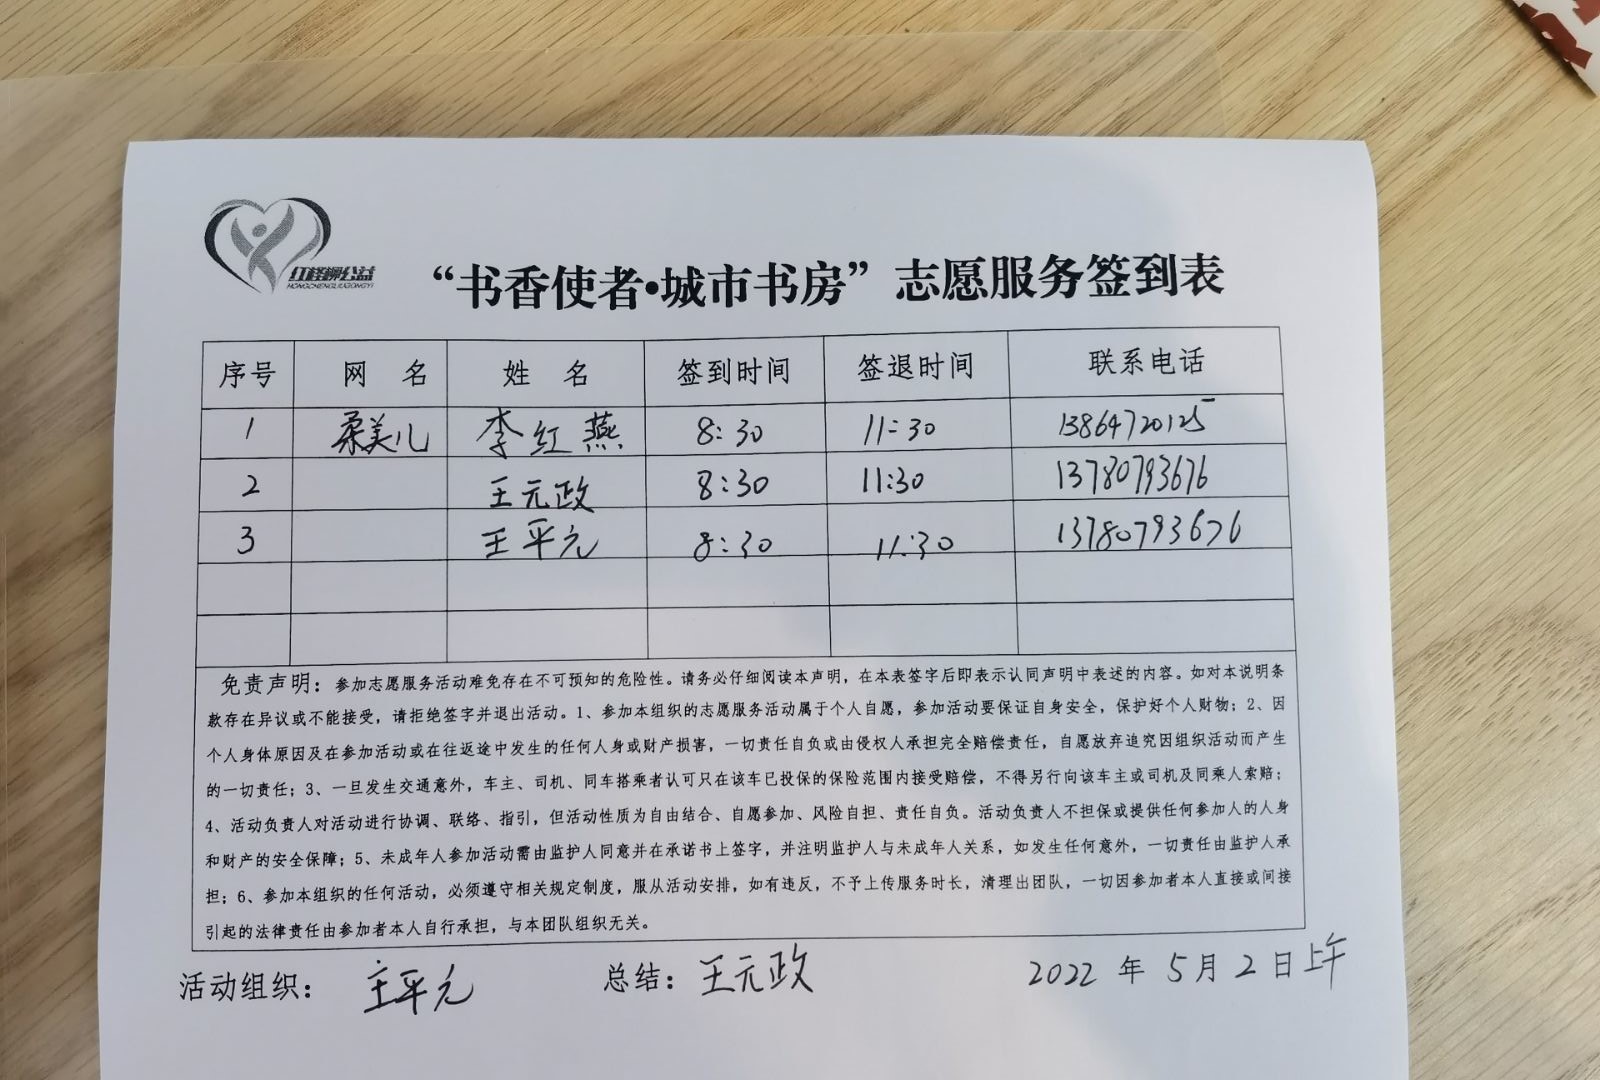 红柽柳公益
HONGCHENGLIUGONGYI
“书香使者•城市书房”志愿服务签到表
序号 网 名 姓 名 签到时间 签退时间 联系电话
1 柔美儿 李红燕 8:30 11:30 13864720125
2 王元政 8:30 11:30 13780793676
3 王平元 8:30 11:30 13780793676
免责声明：参加志愿服务活动难免存在不可预知的危险性。请务必仔细阅读本声明，在本表签字后即表示认同声明中表述的内容。如对本说明条
款存在异议或不能接受，请拒绝签字并退出活动。1、参加本组织的志愿服务活动属于个人自愿，参加活动要保证自身安全，保护好个人财物；2、因
个人身体原因及在参加活动或在往返途中发生的任何人身或财产损害，一切责任自负或由侵权人承担完全赔偿责任，自愿放弃追究因组织活动而产生
的一切责任；3、一旦发生交通意外，车主、司机、同车搭乘者认可只在该车已投保的保险范围内接受赔偿，不得另行向该车主或司机及同乘人索赔；
4、活动负责人对活动进行协调、联络、指引，但活动性质为自由结合、自愿参加、风险自担、责任自负。活动负责人不担保或提供任何参加人的人身
和财产的安全保障；5、未成年人参加活动需由监护人同意并在承诺书上签字，并注明监护人与未成年人关系，如发生任何意外，一切责任由监护人承
担；6、参加本组织的任何活动，必须遵守相关规定制度，服从活动安排，如有违反，不予上传服务时长，清理出团队，一切因参加者本人直接或间接
引起的法律责任由参加者本人自行承担，与本团队组织无关。
活动组织：王平元 总结：王元政 2022年5月2日上午